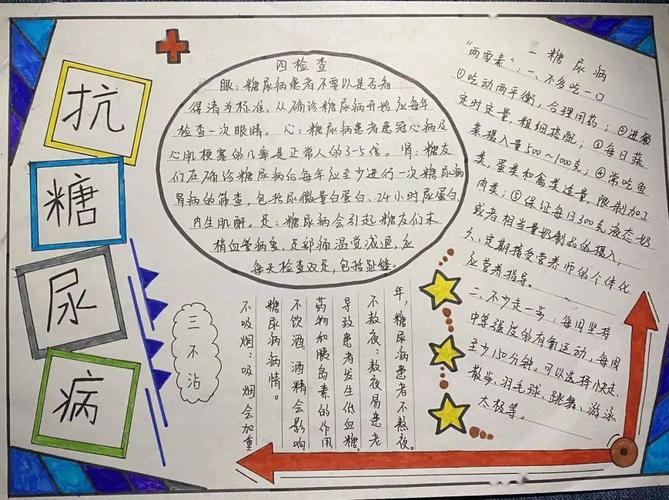 抗
糖
尿
病
四检查
眼:糖尿病患者不要以是否看
得清为标准,从确诊糖尿病开始应每年
检查一次眼睛。心:糖尿病患者患冠心病及
心肌梗塞的几率是正常人的3-5倍。肾:糖友
们在确诊糖尿病后每年应至少进行一次糖尿病
肾病的筛查,包括尿微量白蛋白、24小时尿蛋白、
内生肌酐。足:糖尿病会引起糖友们末
梢血管病变,足部痛温觉减退,应
每天检查双足,包括趾缝。
一糖尿病
"两要素":一、不多吃一口
①吃动两平衡,合理用药;②进餐
定时定量,粗细搭配;③每日蔬
菜摄入量500~1000克;④常吃鱼
类、蛋类和禽类适量,限制加工
肉类;⑤保证每日300克液态奶
或者相当量奶制品的摄入;
⑥、定期接受营养师的个体化
应营养指导。
二、不少走一步,每周坚持
中等强度的有氧运动,每周
至少150分钟。可以选择快走、
散步、羽毛球、跳舞、游泳
太极等。
三不沾
不吸烟:吸烟会加重
糖尿病病情。
不饮酒:酒精会影响
药物和胰岛素的作用
导致患者发生低血糖。
不熬夜:熬夜易患老
年,糖尿病患者不熬夜。